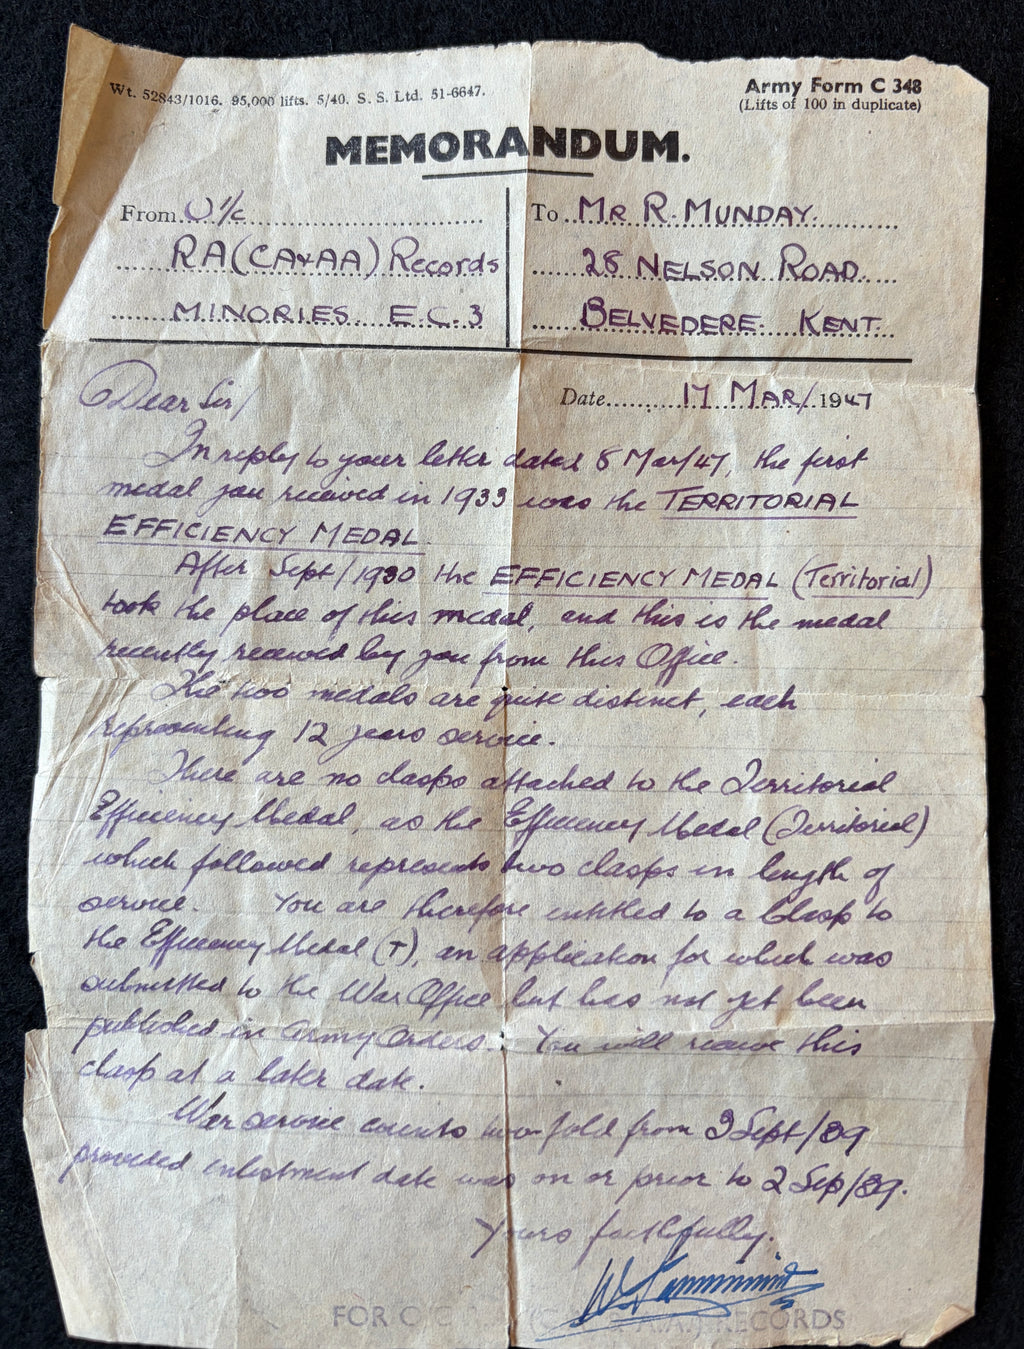 Wt. 52843/1016. 95,000 lifts. 5/40. S. S. Ltd. 51-6647.
Army Form C 348
(Lifts of 100 in duplicate)
MEMORANDUM.
From O i/c
RA (CA & AA) Records
MINORIES E.C.3
To MR R. MUNDAY.
28 NELSON ROAD
BELVEDERE. KENT.
Date 17 MAR/ 1947
Dear Sir/
In reply to your letter dated 8 Mar/47, the first
medal you received in 1933 was the TERRITORIAL
EFFICIENCY MEDAL.
After Sept/1930 the EFFICIENCY MEDAL (Territorial)
took the place of this medal, and this is the medal
recently received by you from this Office.
The two medals are quite distinct, each
representing 12 years service.
There are no clasps attached to the Territorial
Efficiency Medal, as the Efficiency Medal (Territorial)
which followed represents two clasps in length of
service. You are therefore entitled to a Clasp to
the Efficiency Medal (T), an application for which was
submitted to the War Office but has not yet been
published in Army Orders. You will receive this
clasp at a later date.
War service counts two fold from 3 Sept/39
provided enlistment date was on or prior to 2 Sep/39.
Yours faithfully.
FOR O I/C R.A. (C.A. & A.A.) RECORDS